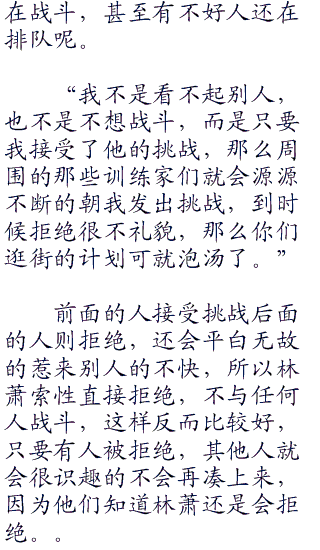 在战斗，甚至有不好人还在
排队呢。
“我不是看不起别人，
也不是不想战斗，而是只要
我接受了他的挑战，那么周
围的那些训练家们就会源源
不断的朝我发出挑战，到时
候拒绝很不礼貌，那么你们
逛街的计划可就泡汤了。”
前面的人接受挑战后面
的人则拒绝，还会平白无故
的惹来别人的不快，所以林
萧索性直接拒绝，不与任何
人战斗，这样反而比较好，
只要有人被拒绝，其他人就
会很识趣的不会再凑上来，
因为他们知道林萧还是会拒
绝。。